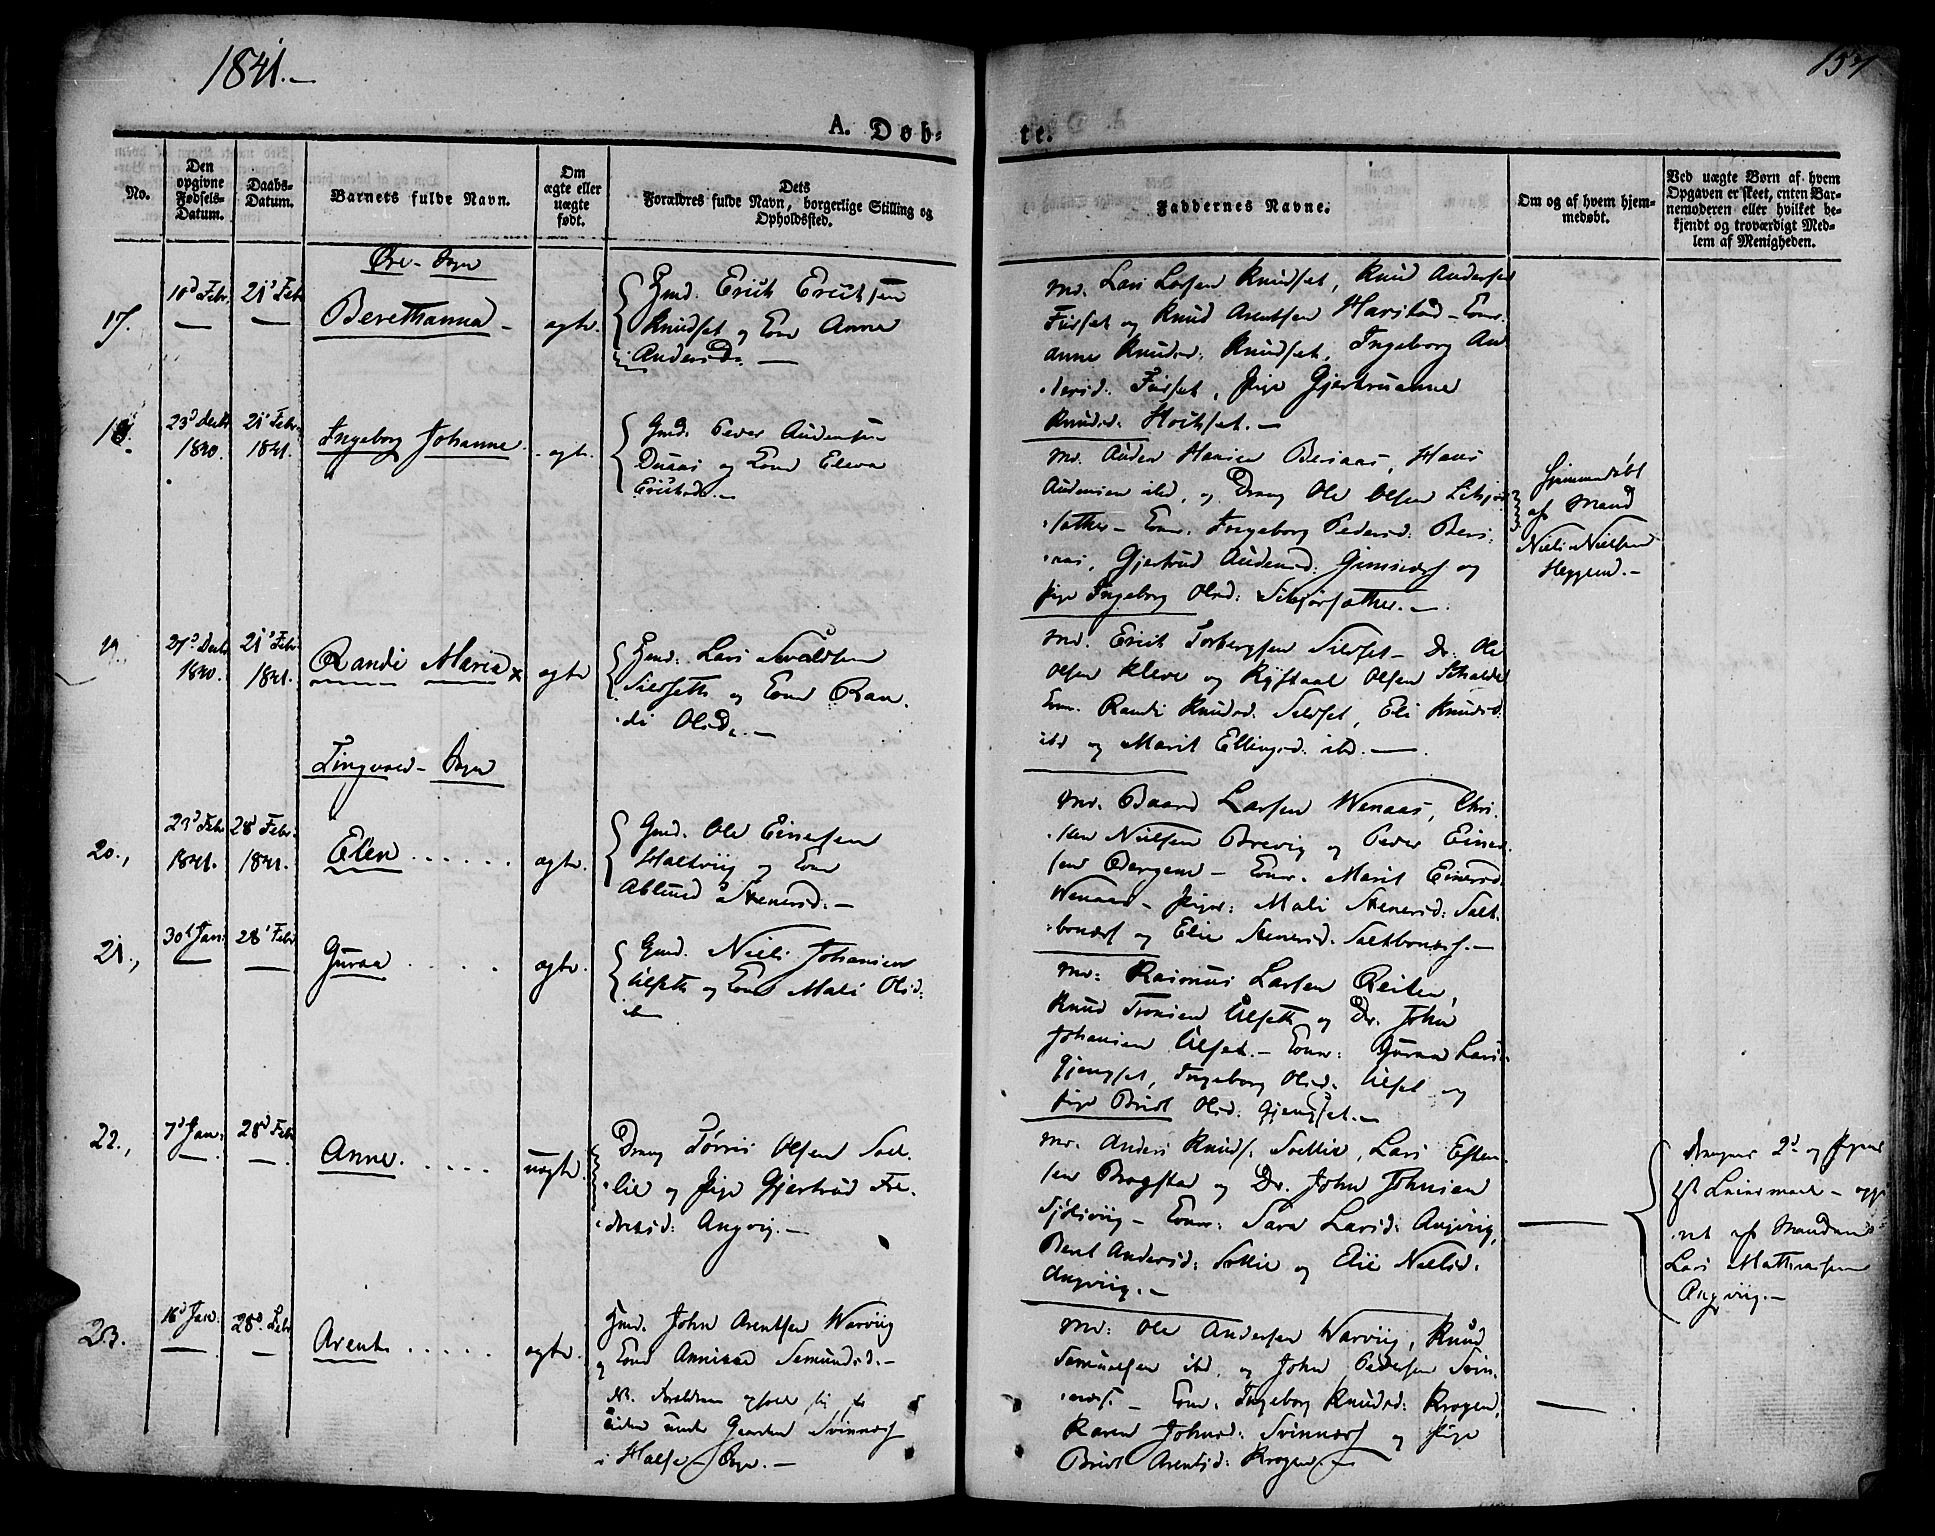 1841.-
157
A. Døb-
te.
No.
Den opgivne Fødsels-Datum.
Daabs-Datum.
Barnets fulde Navn.
Om ægte eller uægte født.
Dets Forældres fulde Navn, borgerlige Stilling og Opholdssted.
Faddernes Navne.
Om og af hvem hjem-
medøbt.
Ved uægte Børn af hvem
Opgaven er skeet, enten Bar-
nemoderen eller hvilket be-
kjendt og troværdigt Med-
lem af Menigheden.
Øre-Sogn
17.
10d Febr.
21' Febr
Berethanna -
ægte.
Gmd. Erich Erichsen
Knudset og Kone Anne
Andersd. -
Md. Lars Larsen Knudset, Knud Anders
Furset og Knud Arentsen Harstad - Koner.
Anne Knudsd: Knudset, Ingeborg An-
dersd: Furset, Pige Gjertruanne
Knudsd: Hochset. -
18.
23d Decbr
1840.
21' Febr.
1841.
Ingeborg Johanne
ægte.
Gmd. Peder Audensen
og Kone Elen
Erichsd. -
Md. Auden Hansen Besaas, Hans
Audensen ibd, og Dreng Ole Olsen
Kone. Ingeborg Pedersd: Bes-
aas, Gjertrud Audensd: og
Pige Ingeborg Olsd: -
Hjemmedøbt
af Mand
Niels Nielsen
Heggem. -
19.
27d Decbr
1840.
21' Febr.
1841.
Randi Maria
ægte
Gmd. Lars
Sildseth og Kone Ran-
di Olsd. -
Md. Erich Torbergsen Sildset - Dr. Ole
Olsen Kleve og Olsen
Kone. Randi Knudsd. Sildset, Eli Knudsd.
ibd og Marit Ellingsd. ibd. -
Tingvold - Sogn
20.,
23d Febr
1841.
28 Febr.
1841.
Elen
ægte.
Gmd. Ole Einersen
Holtviig og Kone
Ablund Stenersd. -
Md. Baard Larsen Wenaas, Chri-
sten Nielsen Brevig og Peder Einer-
sen - Koner. Marit Einersd.
Wenaas - Piger: Mali Stenersd:
og Elie Stenersd. Saltbonæs. -
21.,
30d Jan.
28' Febr
Guraa
ægte.
Gmd. Niels Johansen
Ulseth og Kone Mali Olsd:
ib
Md: Rasmus Larsen Reiten,
Knud Tronsen Ulseth og Dr. John
Johansen Ulset. - Koner: Guraa Larsd.
Gjengset, Ingeborg Olsd: Ulset og
Pige Bridt Olsd: Gjengset. -
22.,
7d Jan:
28d Febr
Anne.
uægte.
Dreng Olsen Sol-
lie og Pige Gjertrud Fre-
driksd: Angvig. -
Md. Anders Knuds. Sollie, Lars Esten-
sen Brogstad og Dr. John Johnsen
Koner: Sara Larsd: Angvig,
Beret Andersd: Sollie og Elie Nielsd:
Angvig. -
Drengens 2d og Pigens
1st Leiermaal - opgi-
vet af Manden
Lars Mathiasen
Angvig. -
23.
16d Jan.
28d. Febr
Arent
ægte.
Gmd. John Arentsen Warviig
og Kone Semundsd. -
NB. Forældrene opholde sig for
tiden under Gaarden Svinnæs
i Halse-Sogn. -
Md: Ole Andersen Warviig, Knud
Semundsen ibd, og John Pedersen Svin-
næs. - Kone. Ingeborg Knudsd: Krogen,
Karen Johnsd: Svinnæs og Pige
Bridt Arentsd: Krogen. -